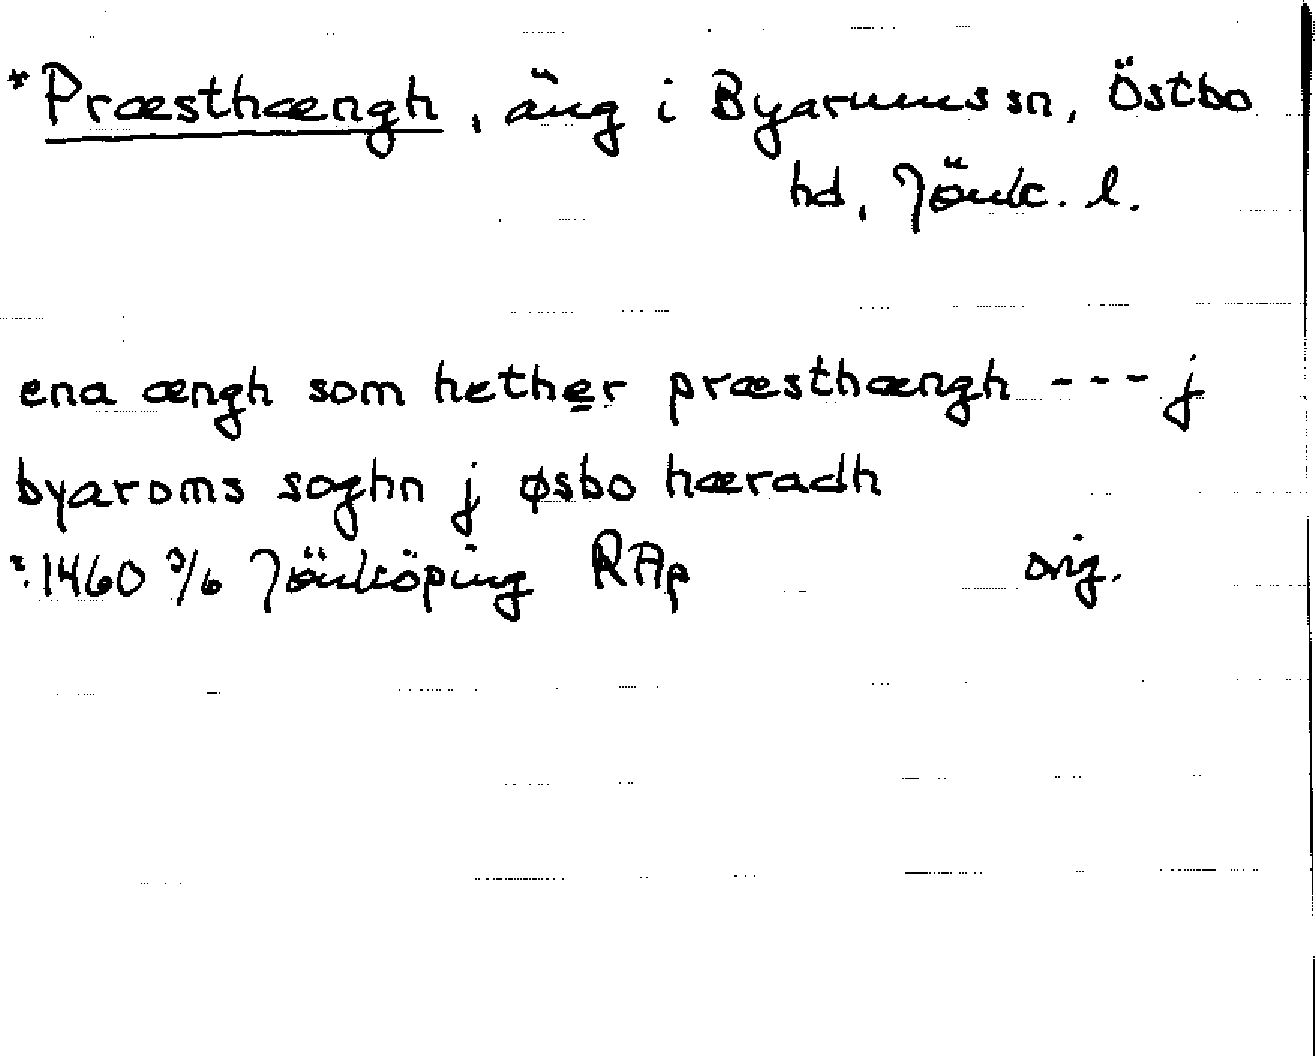 *Præsthængh, äng i Byarums sn, Östbo
hd, Jönk. l.
ena ængh som hether præsthængh --- j
byaroms soghn j øsbo hæradh
1460 3/6 Jönköping RAp orig.